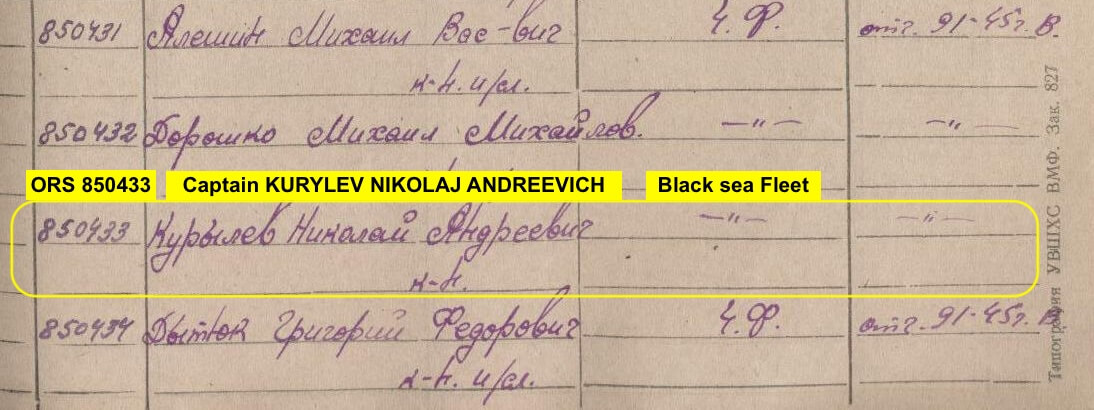 850431 Алешин Михаил Вас-вич Ч.Ф. отч. 91-45г. В.
к-н. и/сл.
850432 Дорошко Михаил Михайлов. —"— —"—
ORS 850433 Captain KURYLEV NIKOLAJ ANDREEVICH Black sea Fleet
850433 Курылев Николай Андреевич —"— —"—
к-н.
850434 Дытюк Григорий Федорович Ч.Ф. отч. 91-45г. В.
к-н. и/сл.
Типография УВШХС ВМФ. Зак. 827